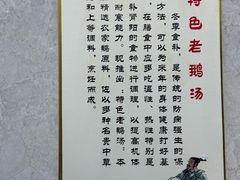 特色老鹅汤
冬季食补,是传统的防病强生的保
方法,可以为来年的身体健康打好基
在膳食中应多吃温性,热性特别是
补肾阳的食物进行调理,以提高机体
耐寒能力。现推出:特色老鹅汤:本
精选农家鹅原料,佐以多种名贵中草
和上等调料,烹饪而成。